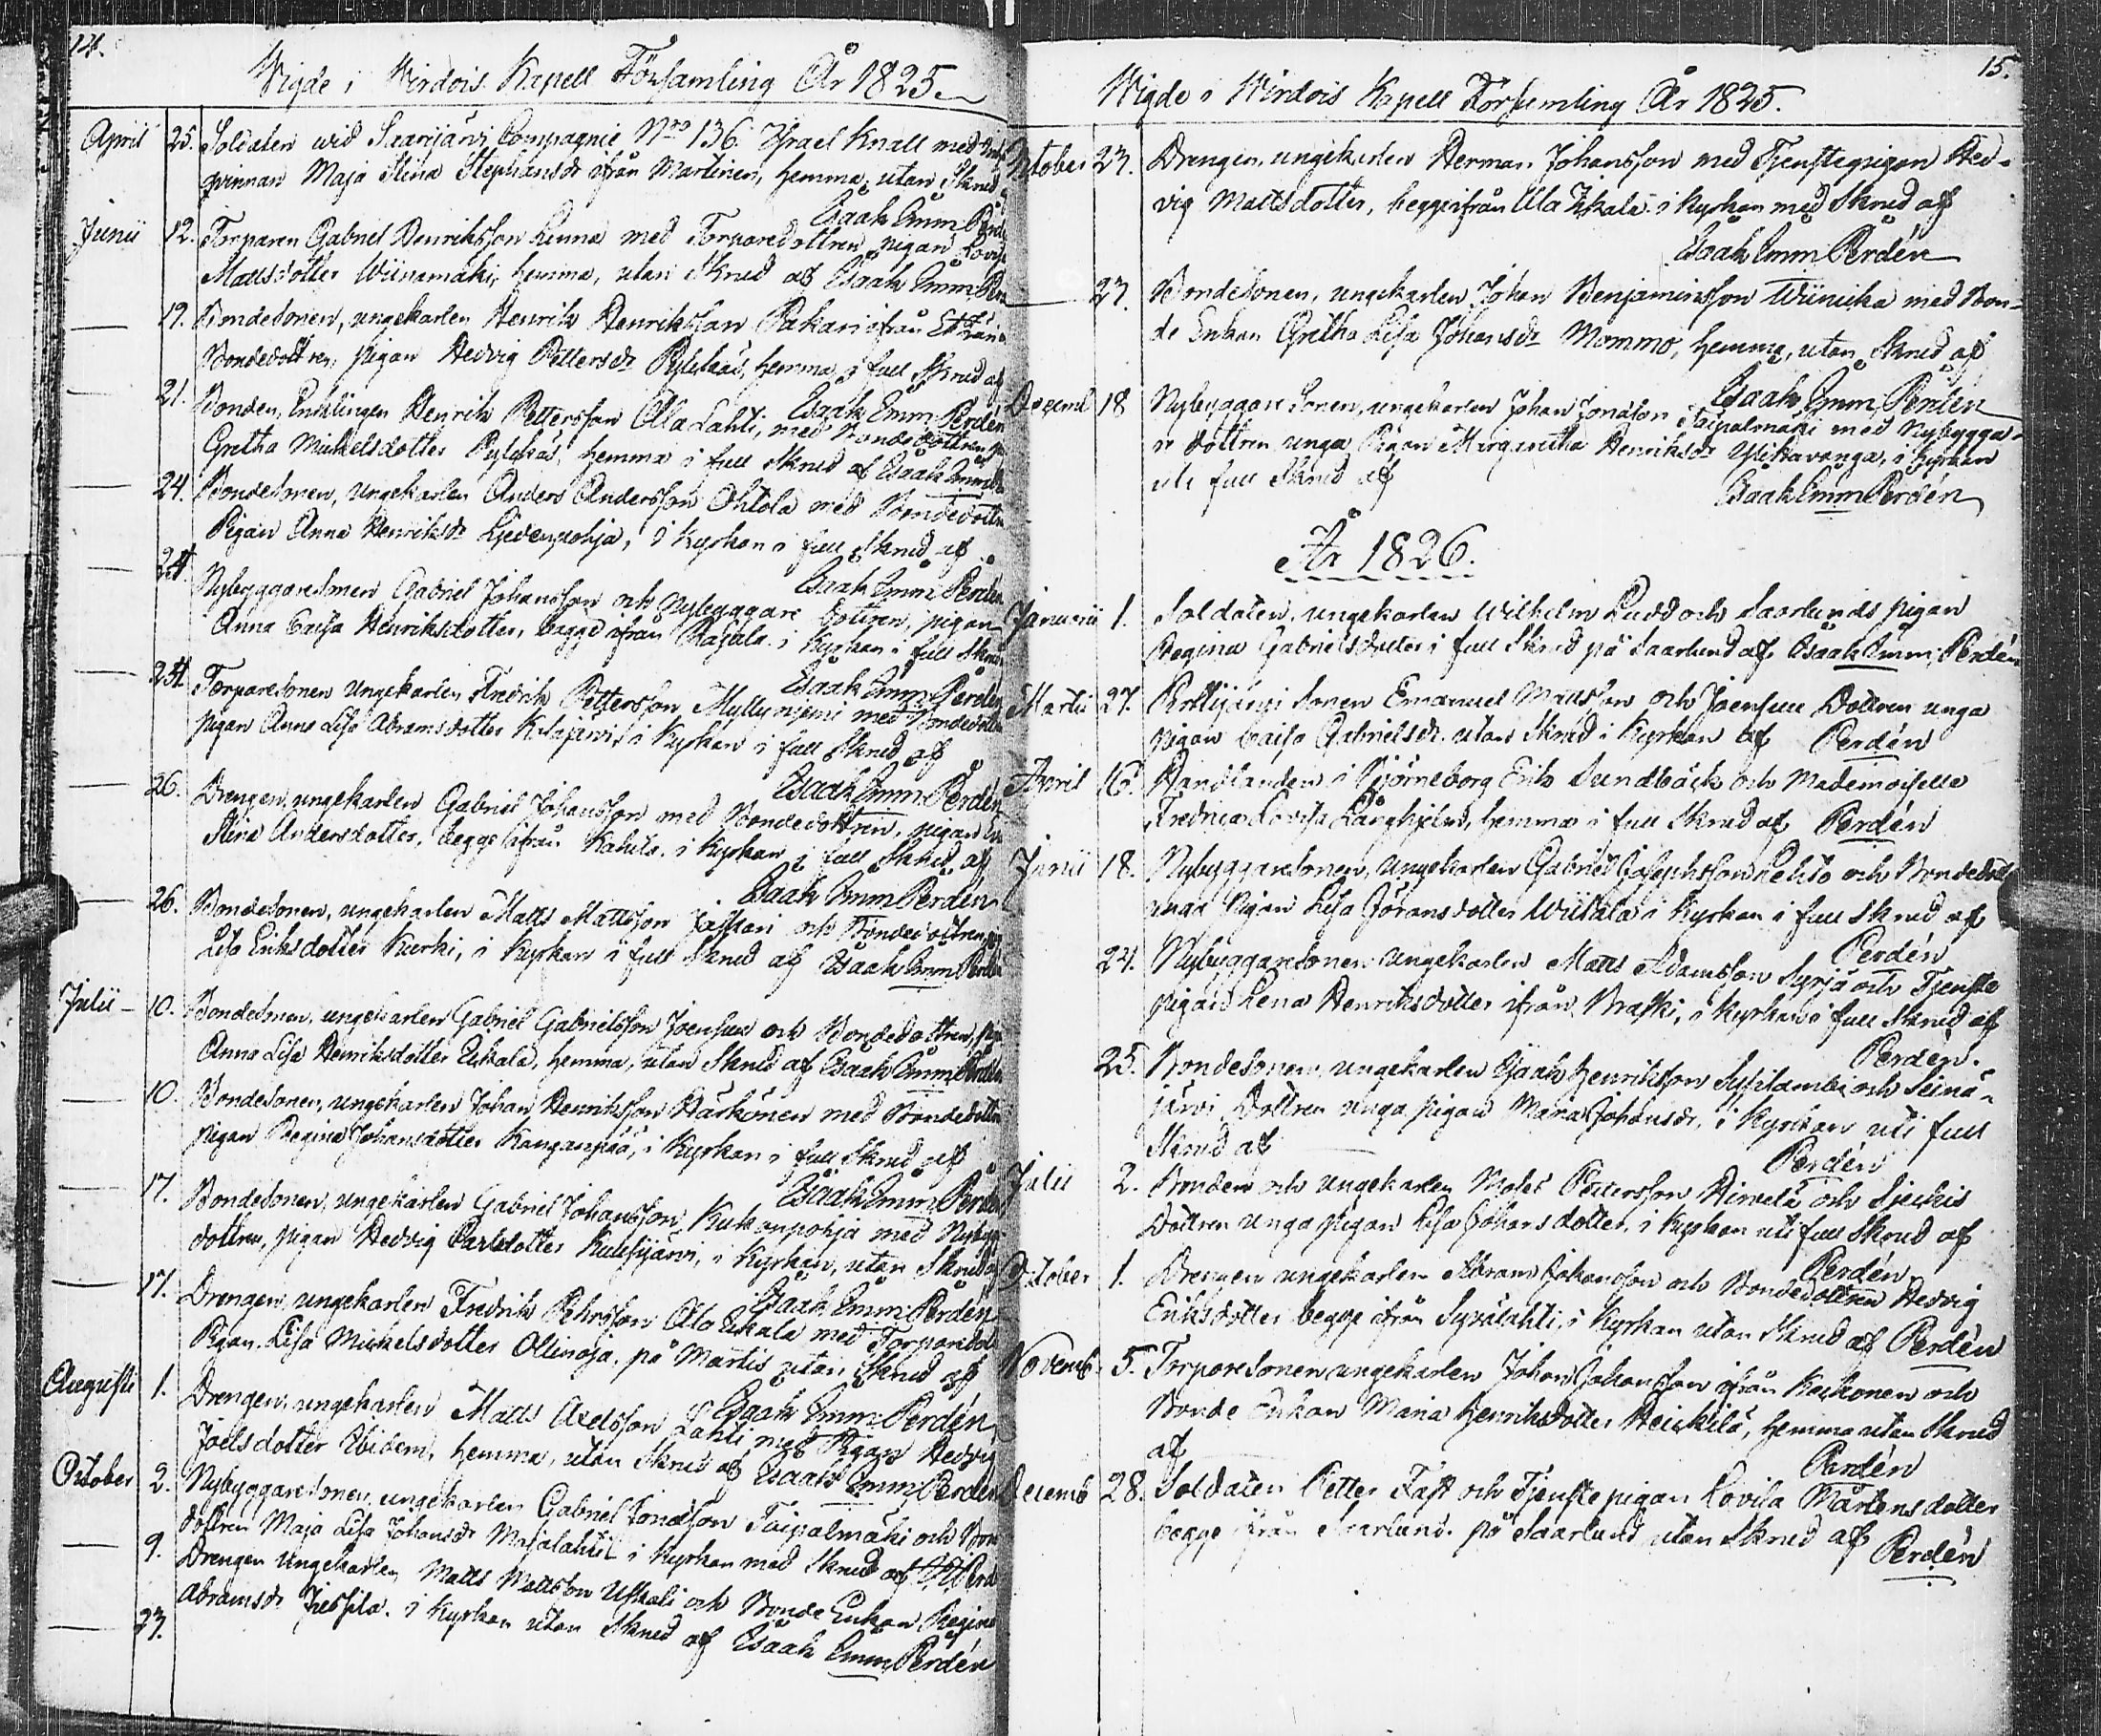 14.
Wigde i Wirdois Kapell Församling År 1825.
April 25. Soldaten wid Saarijärvi Compagnie Nro 136. Israel Knall med
qvinnan Maja Stina Stephansdr ifrån Martinen, hemma, utan Skrud
Esaak Emm. Perdén
Junii 12. Torparen Gabriel Henriksson Linna med Torparedottren pigan Lovisa
Mattsdotter Wiinamäki, hemma, utan Skrud af Esaak Emm Per
— 19. Bondesonen, ungekarlen Henrik Henriksson Pakari ifrån
Bondedottren, pigan Hedvig Pettersdr Pylkäs, hemma i full Skrud af
Esaak Emm. Perdén
21. Bonden, Enklingen Henrik Pettersson Olla Lahti, med Bondedottren
Gretha Mickelsdotter Pylkäs, hemma i full Skrud af Esaak Emm
— 24. Bondesonen, ungekarlen Anders Andersson Ohtola med Bondedottr
Pigan Anna Henriksdr Liedenpohja, i Kyrkan i full Skrud af
Esaak Emm Perdén
— 24. Nybyggaresonen Gabriel Johansson och Nybyggare dottren, pigan
Anna Caisa Henriksdotter, bägge ifrån Rajala i Kyrkan i full Skrud
Esaak Emm. Perdén
— 24. Torparesonen ungekarlen Fredrik Pettersson Myllyniemi med Bondedottr
pigan Anna Lisa Abramsdotter Kilajärvi, i Kyrkan i full Skrud af
Esaak Emm. Perdén
— 26. Drengen, ungekarlen Gabriel Johansson med Bondedottren, pigan
Stina Andersdotter, begge ifrån Kahila i Kyrkan i full Skrud af
Esaak Emm Perdén
— 26. Bondesonen, ungekarlen Matts Mattsson Jäskari och Bondedottren
Lisa Eriksdotter Kurki, i Kyrkan i full Skrud af Esaak Emm Perdén
Julii — 10. Bondesonen, ungekarlen Gabriel Gabrielsson Joensuu och Bondedottren,
Anna Lisa Henriksdotter Uskala, hemma, utan Skrud af Esaak Emm Perdén
— 10. Bondesonen, ungekarlen Johan Henriksson Härkönen med Bondedottren
pigan Regina Johansdotter Kanganpää, i Kyrkan i full Skrud af
Esaak Emm Perdén
— 17. Bondesonen, ungekarlen Gabriel Johansson Kukonpohja med Nybygg
dottren, pigan Hedvig Carlsdotter Kulesjärvi, i Kyrkan, utan Skrud af
Esaak Emm Perdén
— 17. Drengen, ungekarlen Fredrik Pehrsson Ala Uskala med Torparedott
Pigan Lisa Mickelsdotter Ollinoja, på Martis utan Skrud af
Esaak Emm Perdén
Augusti 1. Drengen, ungekarlen Matts Axelsson Lahti med Pigan Hedvig
Joelsdotter Ibidem, hemma, utan Skrud af Esaak Emm; Perdén
October 2. Nybyggaresonen, ungekarlen Gabriel Jonasson Taipalmäki och Bon
dottren Maja Lisa Johansdr Majalahti i Kyrkan med Skrud af
— 9. Drengen ungekarlen Matts Mattsson Uskali och Bonde Enkan Regina
— 23. Abramsdr Jussila. i Kyrkan utan Skrud af Esaak Emm Perdén
15.
Wigde i Wirdois Kapell Församling År 1825.
October 23. Drengen, ungekarlen Herman Johansson med Tjenstepigan Hed-
vig Mattsdotter, begge ifrån Ala Uskala i Kyrkan med Skrud af
Esaak Emm Perdén
— 27. Bondesonen, ungekarlen Johan Benjaminsson Wiinika med Bon-
de Enkan Gretha Lisa Johansdr Mommo, hemma, utan Skrud af
Esaak Emm Perdén
Decemb 18 Nybyggare Sonen, ungekarlen Johan Jonasson Taipalmäki med Nybygga-
re dottren unga Pigan Margaretha Henriksdr Ylikavonga, i Kyrkan
uti full Skrud af
Esaak Emm Perdén
År 1826.
Januarii 1. Soldaten, ungekarlen Wilhelm Ludd och Saarlunds pigan
Regina Gabrielsdotter i full Skrud på Saarlund af Esaak Emm; Perdén
Martii 27. Kortijärvi Sonen Emanuel Mattsson och Joensuu Dottren unga
pigan Caisa Gabrielsdr. utan Skrud i Kyrkan af Perdén
April 16. Handlanden i Björneborg Erik Sundbäck och Mademoiselle
Fredrica Lovisa Långhjelm, hemma i full Skrud af Perdén
Junii 18. Nybyggaresonen, ungekarlen Gabriel Josephsson Lehto och Bondedott
unga Pigan Lisa Göransdotter Wiitala i Kyrkan i full Skrud af
Perdén
24. Nybyggaresonen ungekarlen Matts Adamsson Syrjä och Tjenste
pigan Lena Henriksdotter ifrån Braski, i Kyrkan i full Skrud af
Perdén.
25. Bondesonen, ungekarlen Isaak Henriksson Sysilambi och Seinä-
järvi Dottren unga pigan Maria Johansdr, i Kyrkan uti full
Skrud af
Perdén
Julii 2. Bonden och ungekarlen Moses Pettersson Hirvelä och Sjeckis
Dottren unga pigan Lisa Johansdotter, i Kyrkan uti full Skrud af
Perdén
October 1. Drengen ungekarlen Abram Johansson och Bondedottren Hedvig
Eriksdotter begge ifrån Syvälahti, i Kyrkan utan Skrud af Perdén
Novemb. 5. Torparesonen ungekarlen Johan Johansson ifrån Kaskonen och
Bonde Enkan Maria Henriksdotter Heickilä, hemma utan Skrud
af
Perdén
Decemb 28. Soldaten Petter Fast och Tjenste pigan Lovisa Mårtensdotter
begge ifrån Saarlund. på Saarlund utan Skrud af Perdén